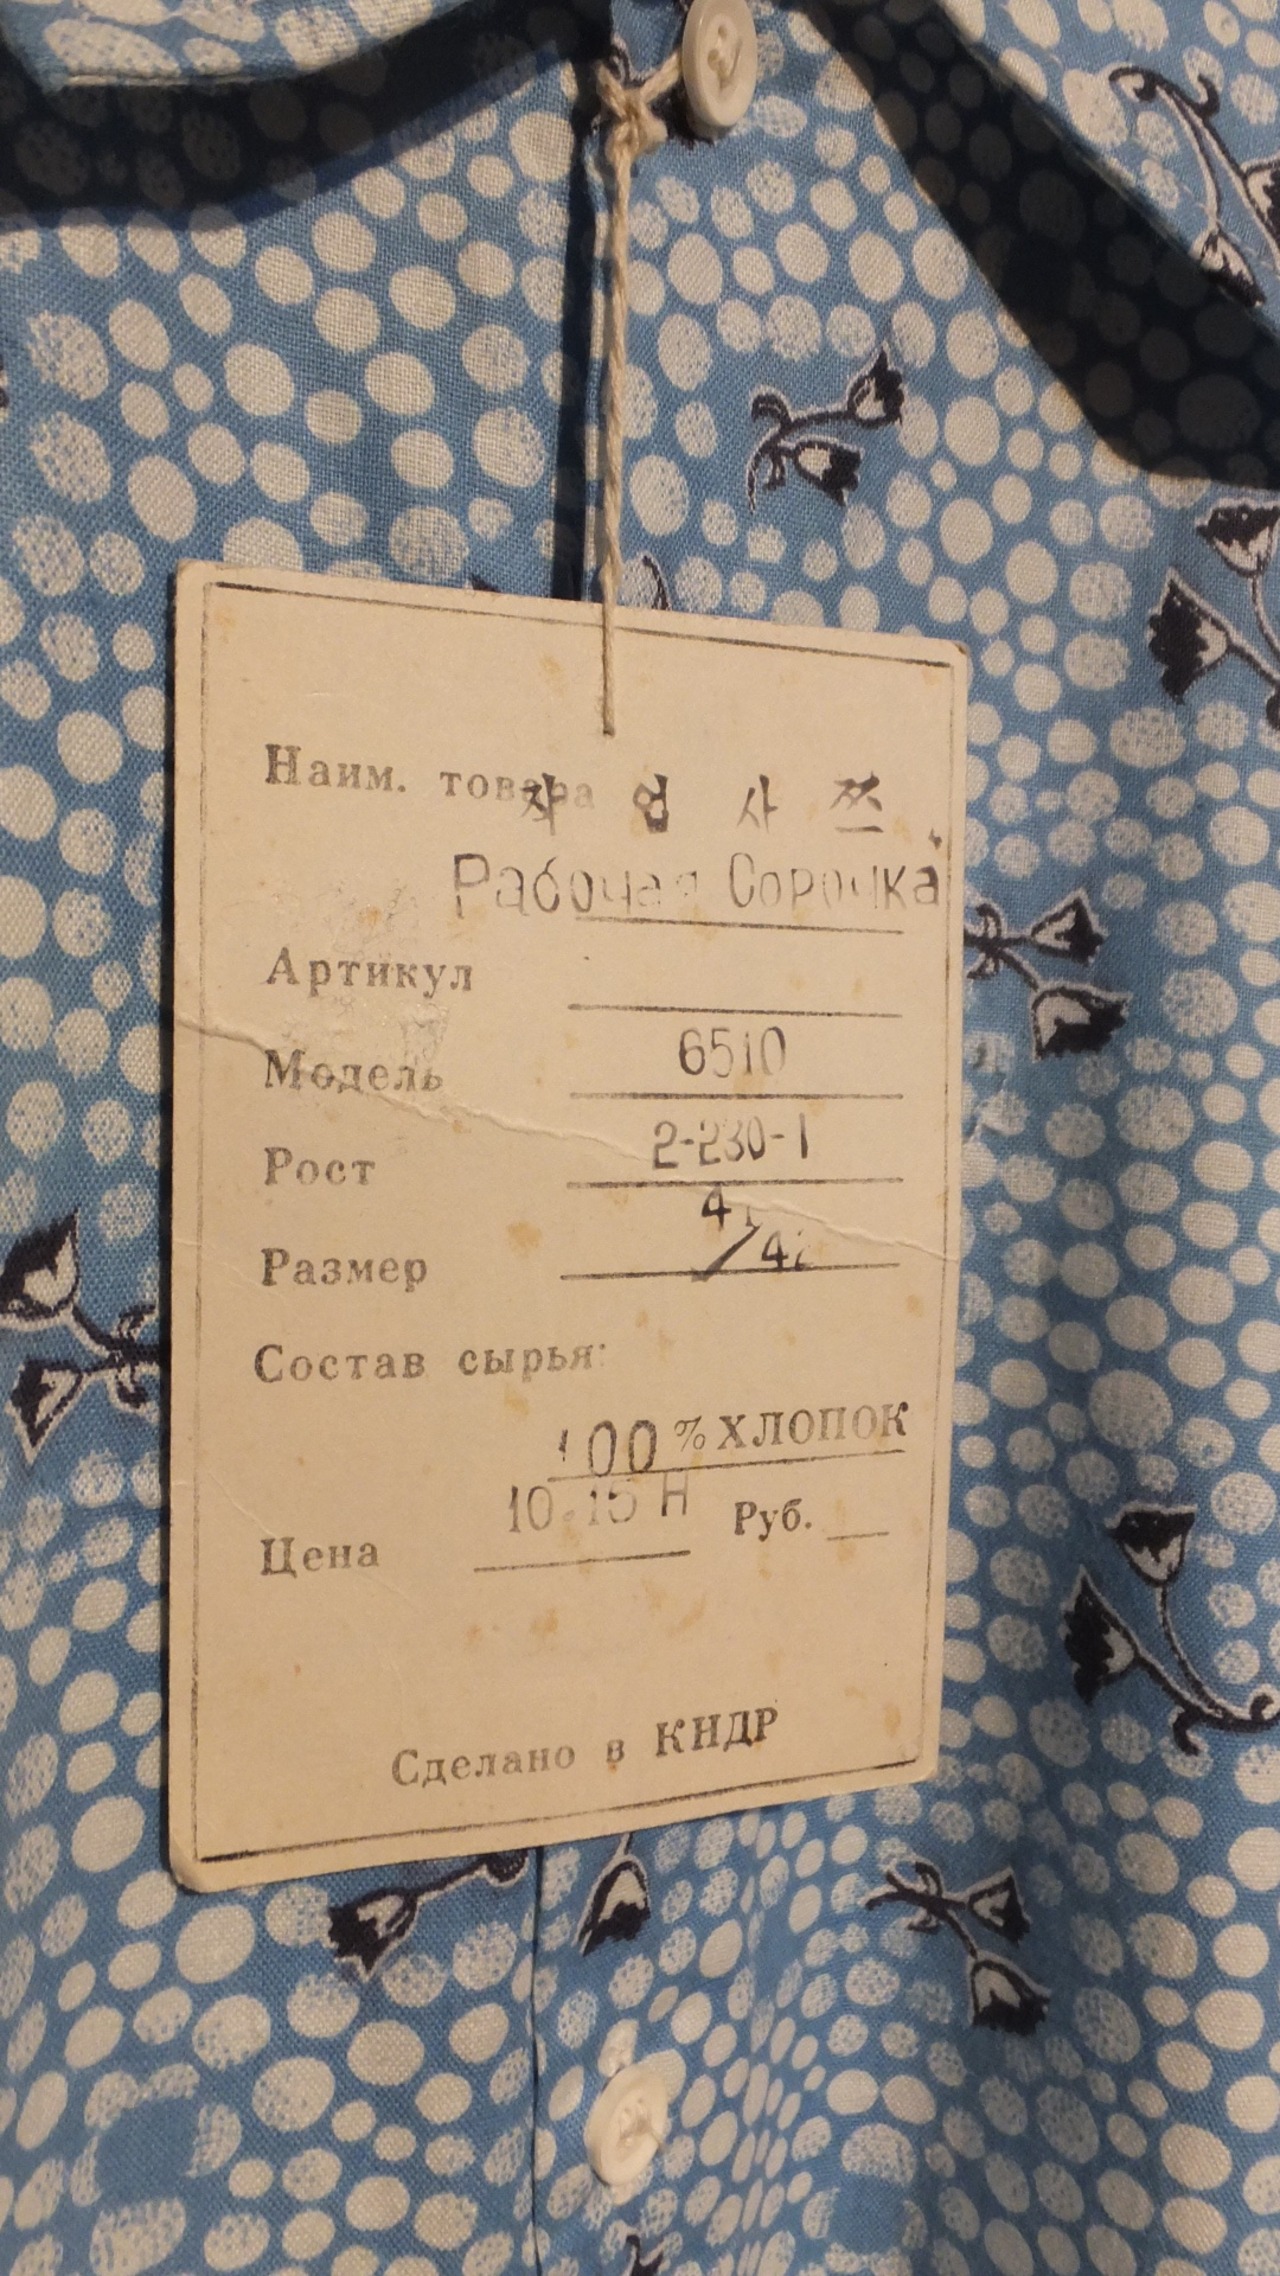 Наим. товара
작 업 샤 쯔
Рабочая Сорочка
Артикул
Модель 6510
Рост 2-230-1
Размер 41/42
Состав сырья:
100 % ХЛОПОК
Цена 10.15 Н Руб.
Сделано в КНДР